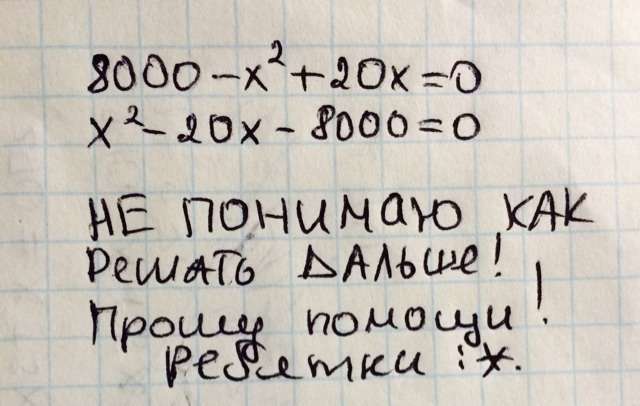 8000-x²+20x=0
x²-20x-8000=0
НЕ ПОНИМАЮ КАК
РЕШАТЬ ДАЛЬШЕ!
Прошу помощи!
Ребятки :*.